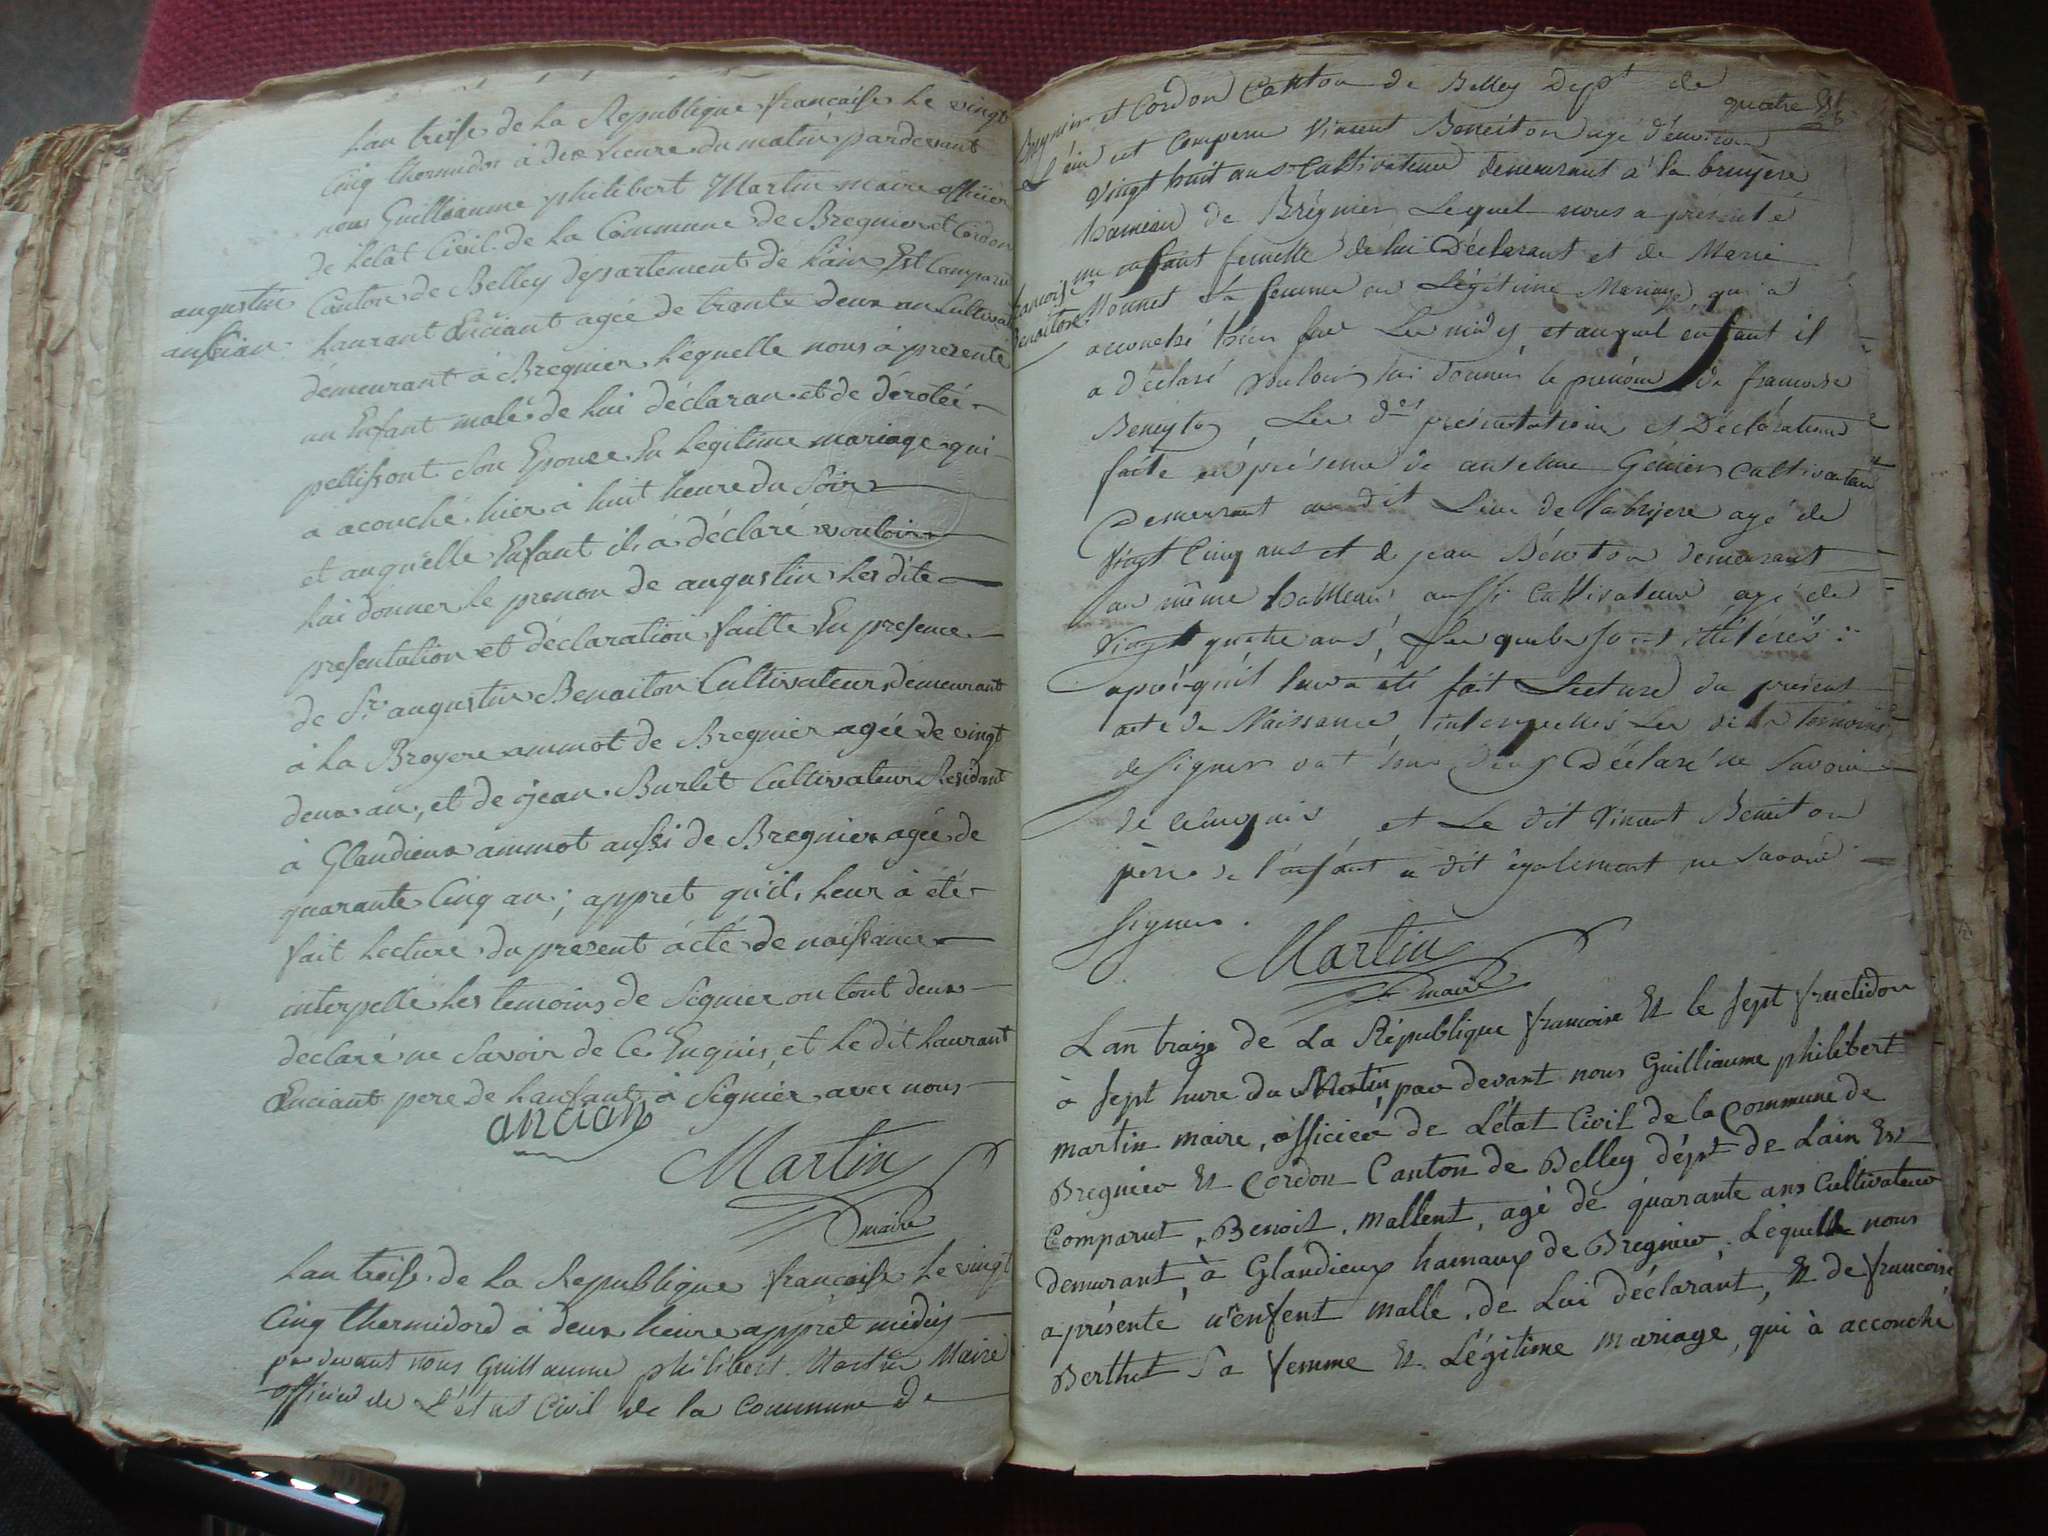 Lan treise de la Republique francaise le vingt
Cinq thermidor à dix heure du matin pardevant
nous Guilliaume philibert Martin maire officier
de létat Civil de la Commune de Bregnier et Cordon
Canton de Belley département de lain Est Comparu
augustin
ansian
Laurant Enciant agée de trante deux an Cultivat
démeurant à Bregnier, lequelle nous à présenté
un Enfant male de lui déclaran et de dérotéé
pellissont son Epouse En légitime mariage qui
à acouché hier à huit heure du Soir
et auquelle Enfant il à déclaré vouloir
lui donner le prenon de augustin les dite
presentation et déclaration faitte En presence
de Sr augustin Benaiton Cultivateur démeurant
à la Broyere ammot de Bregnier agée de vingt
deux an, et de jean Burlet Cultivateur Residant
à Glandieux ammot aussi de Bregnier agée de
quarante Cinq an; appret qu'il leur à été
fait lecture du present acte de naissance
interpellé les temoins de Signier on tout deux
declaré ne Savoir de Ce Enquis, et le dit Laurant
Enciant pere de lanfant à Signier avec nous
ancian
Martin
maire
Lan treise de la Republique francaise le vingt
Cinq thermidord à deux heure appret midiy
par devant nous Guillaume philibert Martin Maire
officier de L'état Civil de la Commune de
Bregnier et Cordon Canton de Belley Dept de
quatre
L'ain est Comparu Vincent Beneiton agé d'environ
vingt huit ans Cultivateur demeurant à la bruyère
hameau de Brégnier Lequel nous a présenté
un enfant femelle de lui Déclarant et de Marie
francoise
Benaiton
Monnet sa femme en Légitime Mariage, qui a
accouché hier sur Les midy, et auquel enfant il
a déclaré vouloir lui donner le prénom de francoise
Beneyton, Les dtes présentation et Déclaration
faite en présence de anselme Genier Cultivateur
Demeurant au dit Lieu de labruyere agé de
vingt Cinq ans et de jean Béneton demeurant
au même hameau aussi Cultivateur agé de
vingt quatre ans, Les quels sont illitérés
après qu'il leur a été fait Lecture du présent
acte de Naissance, interpellés Les dits temoins
de signer ont tous deux Déclaré ne Savoir
de ce enquis et Le dit Vincent Beneiton
père de l'enfant a dit également ne Savoir
signer.
Martin
maire
Lan traize de La République francoise Et le sept fructidor
à sept hure du Matin, par devant nous Guilliaume philibert
martin maire, officier de Létat Civil de la commune de
Bregnier Et Cordon Canton de Belley dépt de Lain Est
Comparut, Benoit, mallent, agé de quarante ans Cultivateur
demurant, à Glandieux hamaux de Bregnier, Lequelle nous
a présenté un enfent malle, de Lui déclarant, Et de francoise
Berthet Sa femme En Légitime mariage, qui à accouché